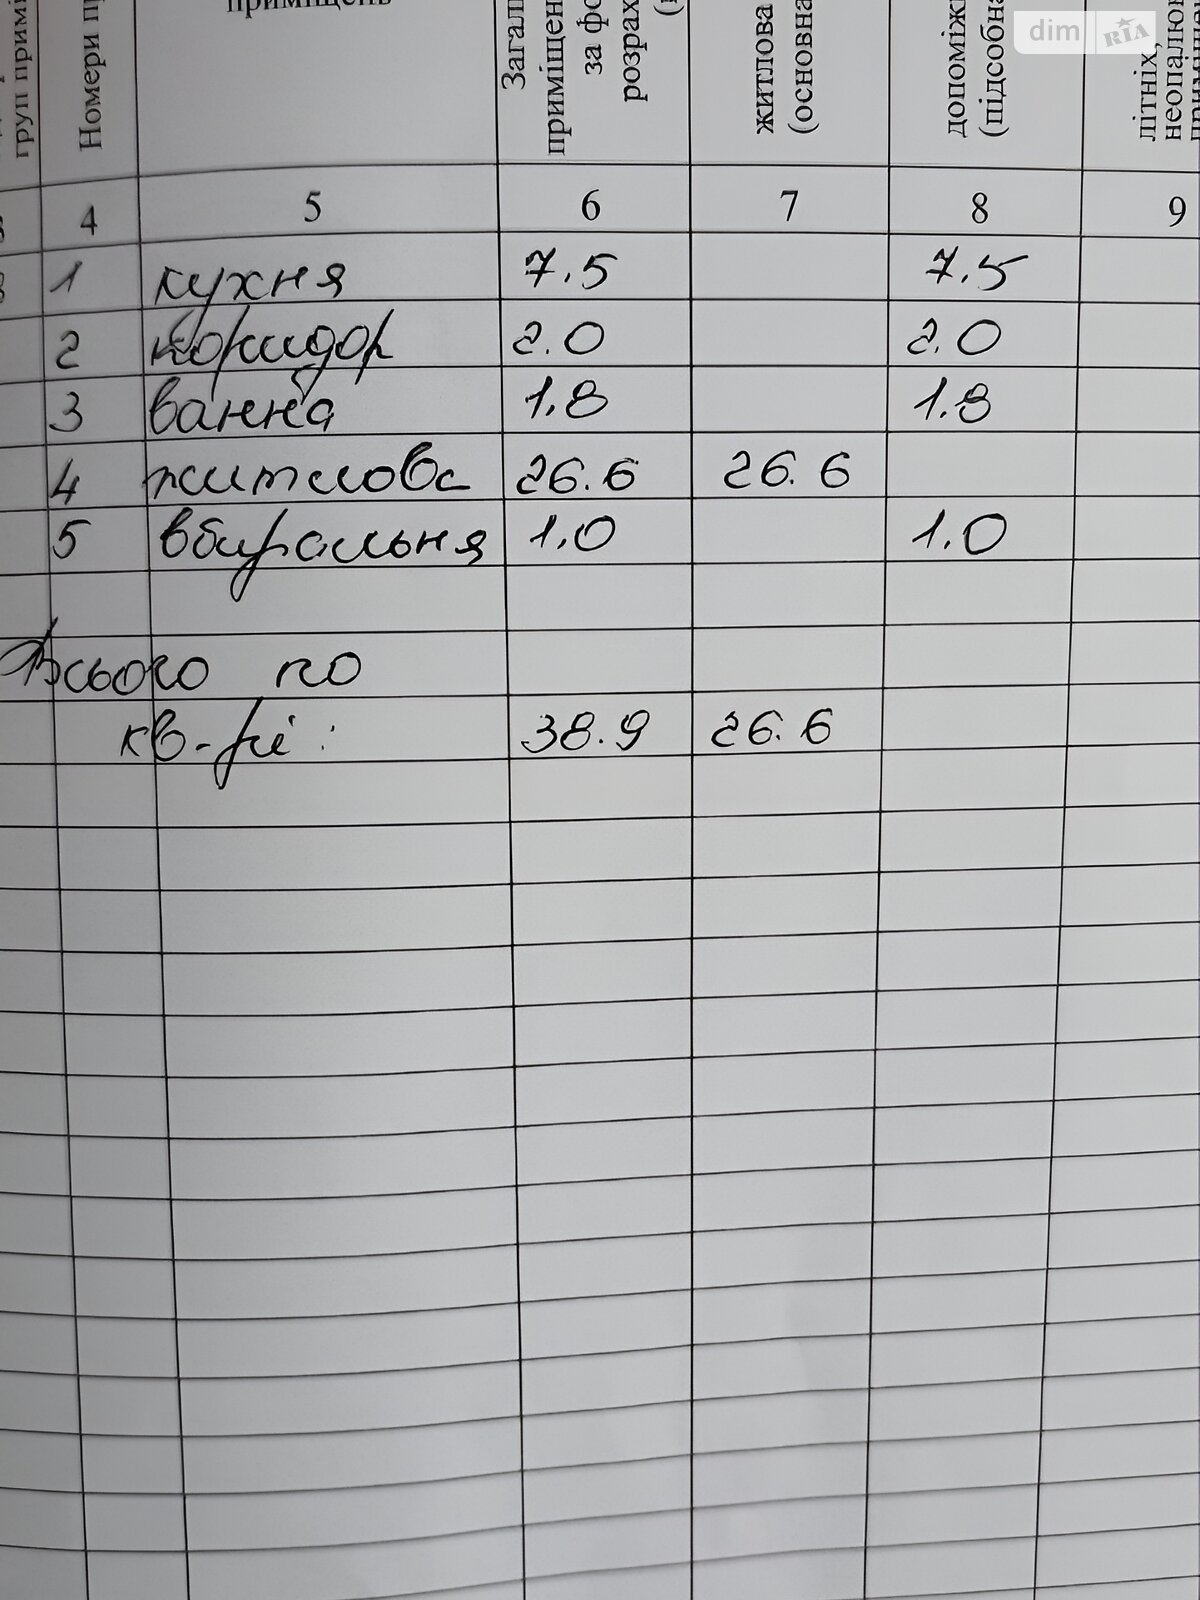 dim RIA
груп примі
Номери пр
приміщень
Загаль
приміщен
за фо
розрах
житлова
(основна
допоміжн
(підсобна
літніх,
неопалюв
4 5 6 7 8 9
1 кухня 7.5 7.5
2 коридор 2.0 2.0
3 ванна 1.8 1.8
4 житлова 26.6 26.6
5 вбиральня 1.0 1.0
Всього по
кв-рі: 38.9 26.6